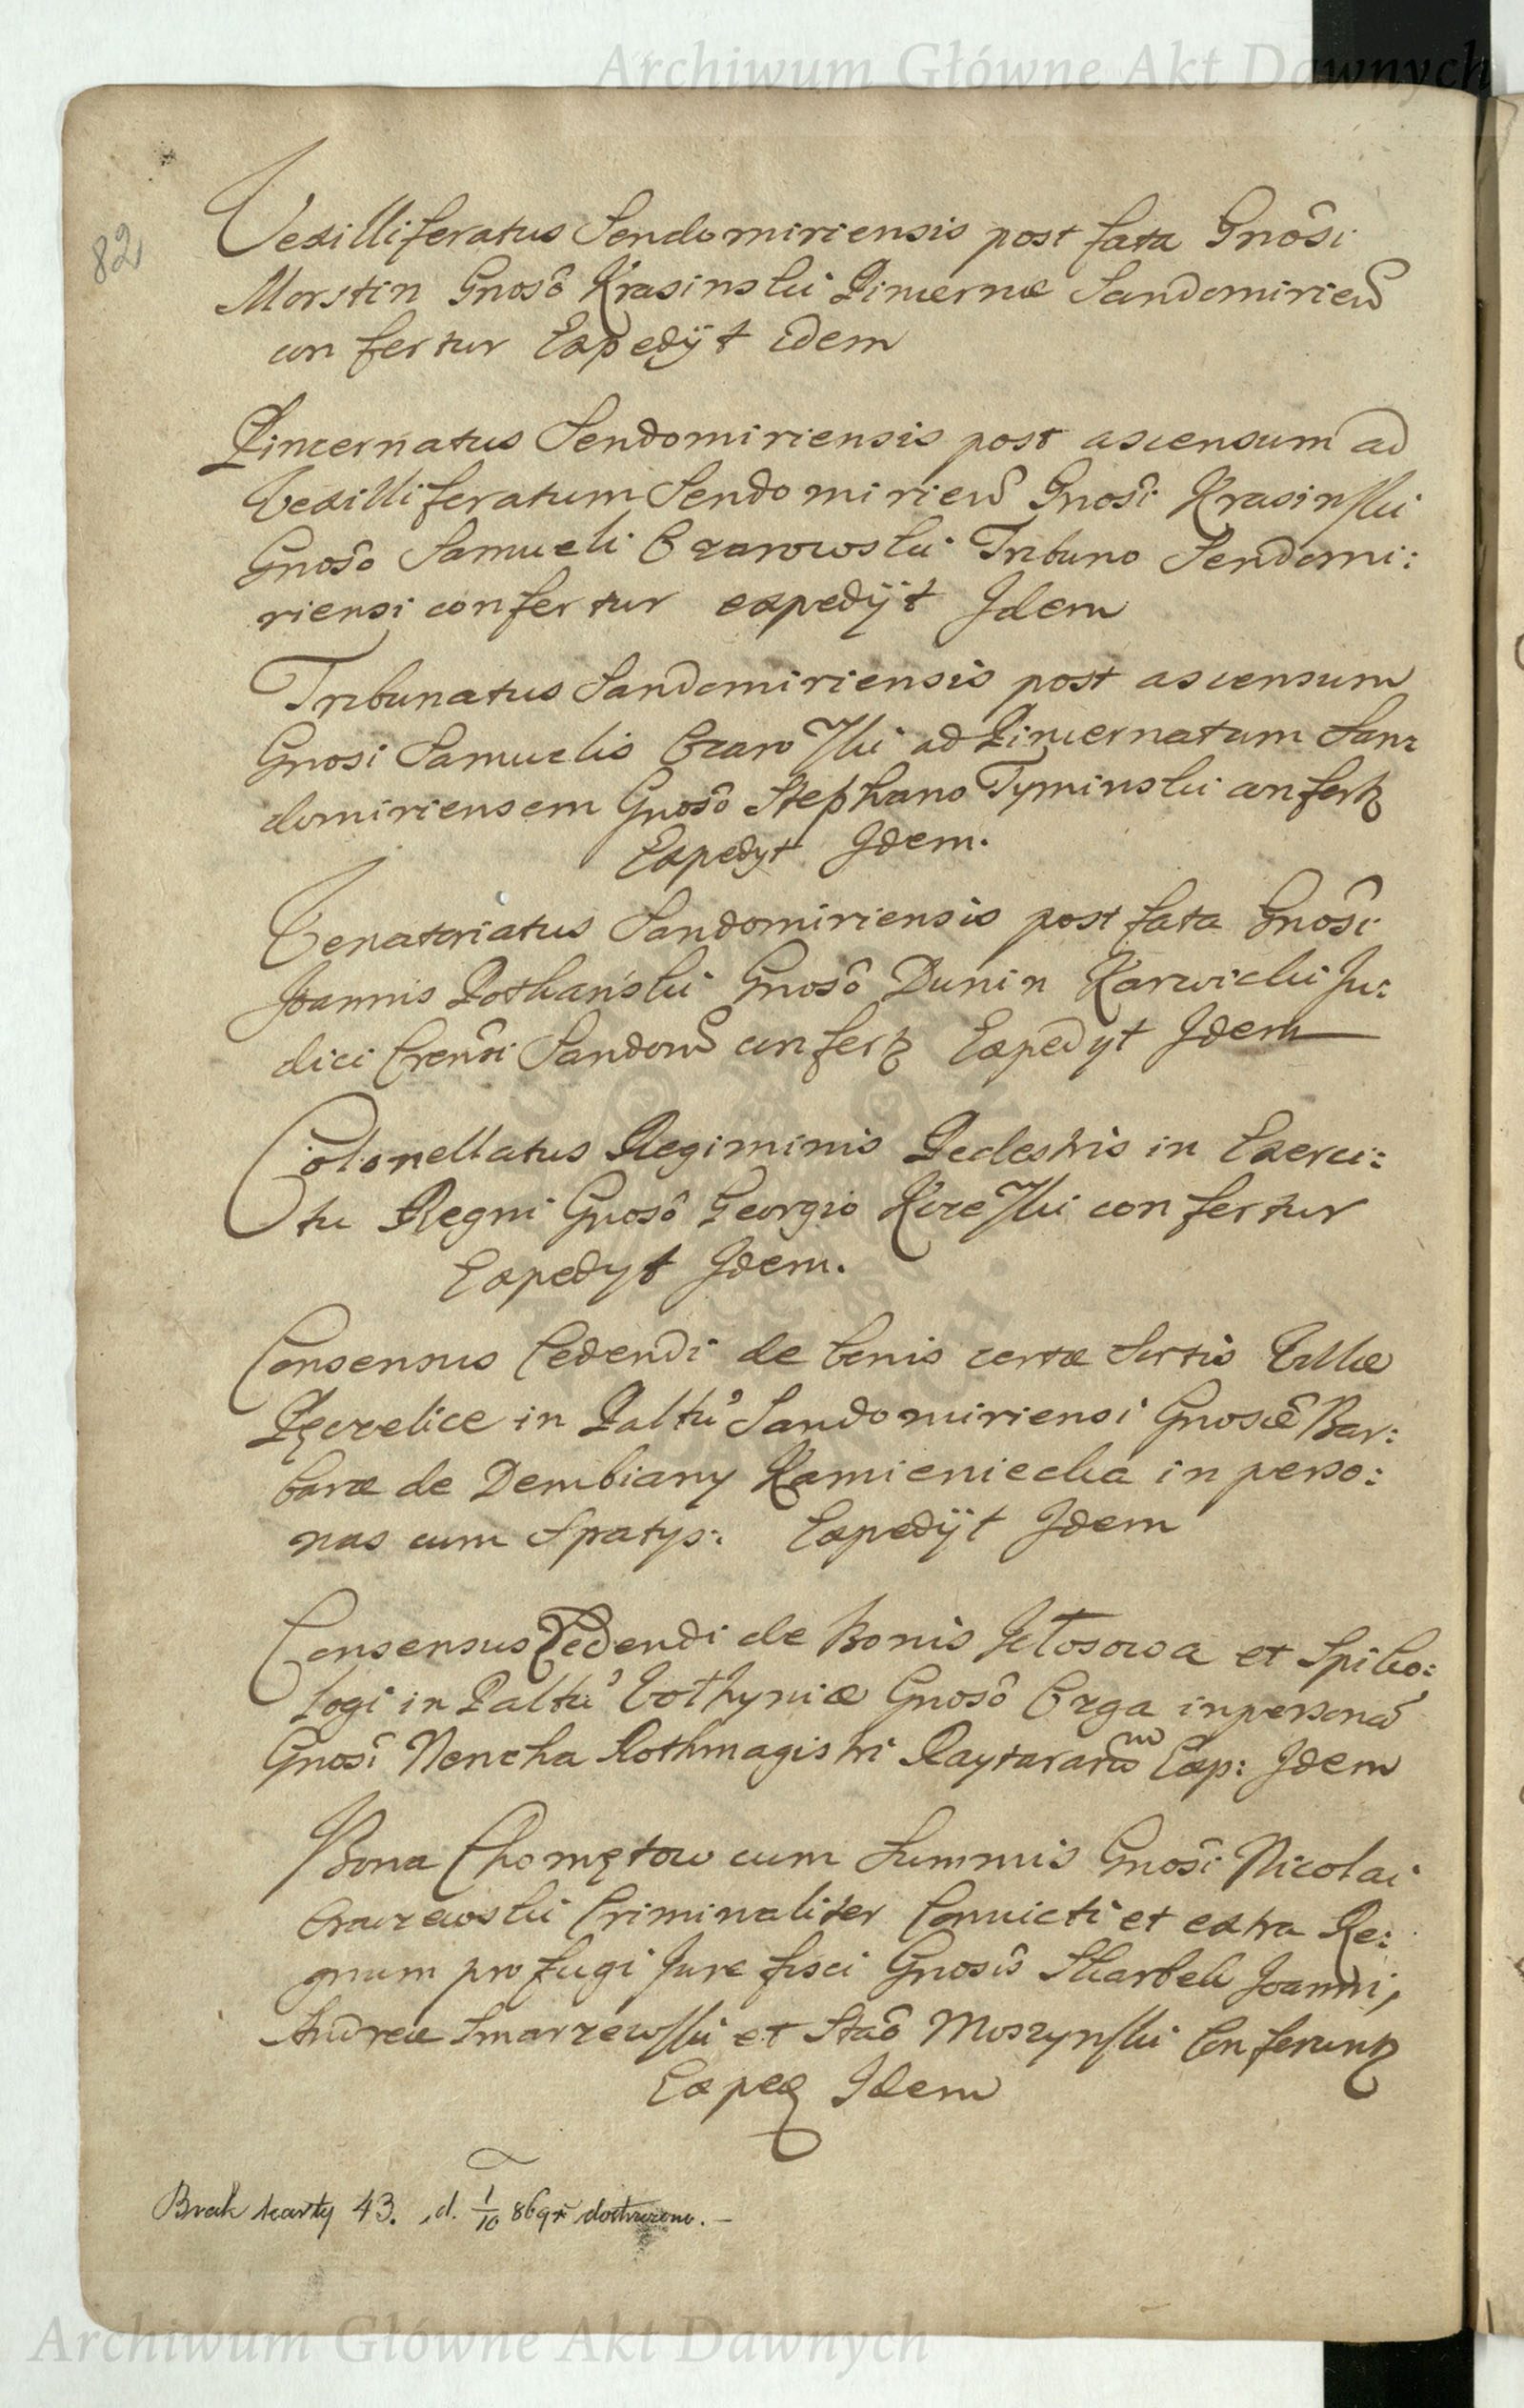 Archiwum Główne Akt Dawnych
82
Vexilliferatus Sendomiriensis post fata Gnôsi
Morstin Gnosô Krasinski Pincernæ Sandomirien̂
confertur Expedÿt Idem
Pincernatus Sendomiriensis post ascensum ad
Vexilliferatum Sendomirien̂ Gnosî Krasinski
Gnosô Samueli Czarowski Tribuno Sendomi:
riensi confertur expedÿt Idem
Tribunatus Sandomiriensis post ascensum
Gnosi Samuelis ad Pincernatum San
domiriensem Gnosô Stephano Tyminski confertɀ
Expedyt Idem.
Venatoriatus Sandomiriensis post fata Gnôsi
Joannis Gnosô Dunin Karwicki Ju:
dici Sandom̂ confertɀ Expedyt Idem
Colonellatus Regiminis Pedestris in Exerci:
tu Regni Gnosô Georgio confertur
Expedyt Idem.
Consensus Cedendi de bonis certæ Sortis Villæ
Pęczelice in Palttu Sandomiriensi Gnosæ̂ Bar:
baræ de Dembiany Kamieniecka in perso:
nas cum Spatys: Expedÿt Idem
Consensus Cedendi de Bonis et
in Palttu Vołhyniæ Gnosô in personam̂
Gnosî Nencha Rothmagistri Raytararum Exp: Idem
Bona Chomętow cum Summis Gnosî Nicolai
Criminaliter Conuicti et extra Re:
gnum profugi Jure fisci Gnosîs Skarbek Joanni,
Andreæ Smarzewski et Staô Moszynski Conferuntɀ
Exped Idem
Brak karty 43. d. 1/10 869 r dostrzeżono. –
Archiwum Główne Akt Dawnych